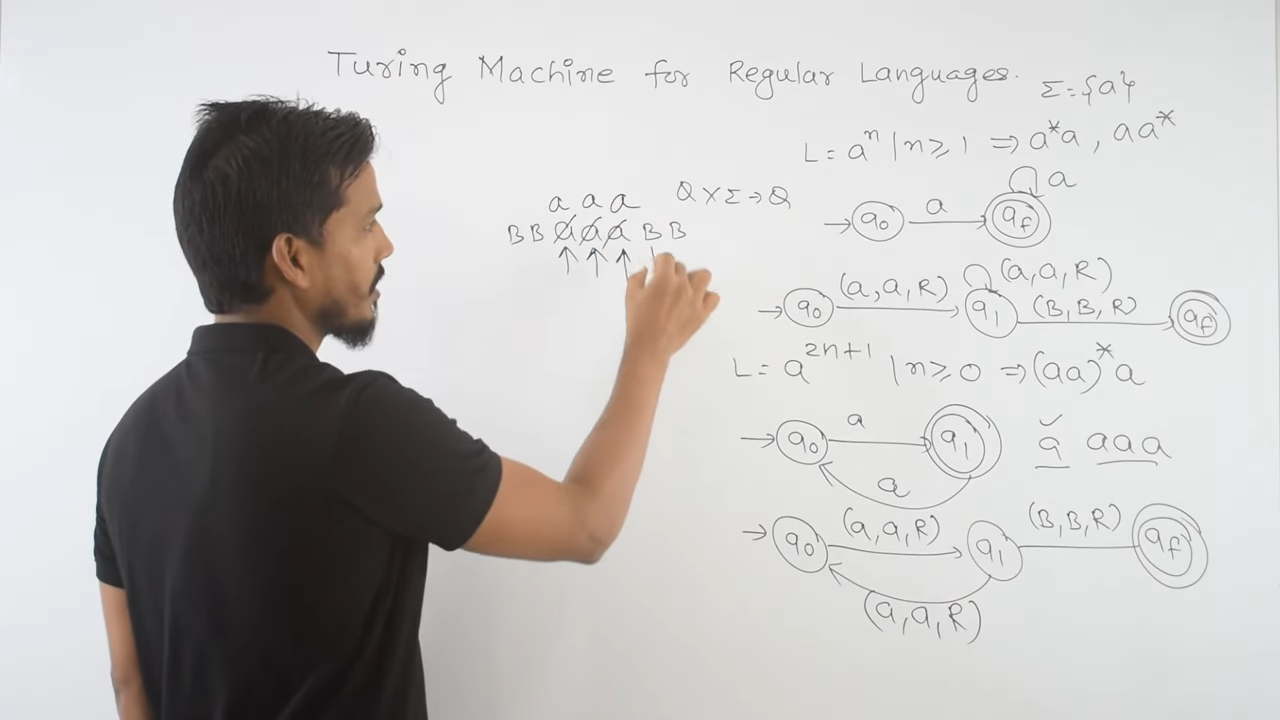 Turing Machine for Regular Languages.
Σ = {a}
L = aⁿ | n ≥ 1 ⇒ a*a , aa*
a a a
Q × Σ → Q
B B a a a B B
↑ ↑ ↑
→ q₀ a → q_f a
→ q₀ (a, a, R) → q₁ (a, a, R) (B, B, R) → q_f
L = a²ⁿ⁺¹ | n ≥ 0 ⇒ (aa)* a
→ q₀ a → q₁ ✓ a aaa
a
→ q₀ (a, a, R) → q₁ (B, B, R) q_f
(a, a, R)